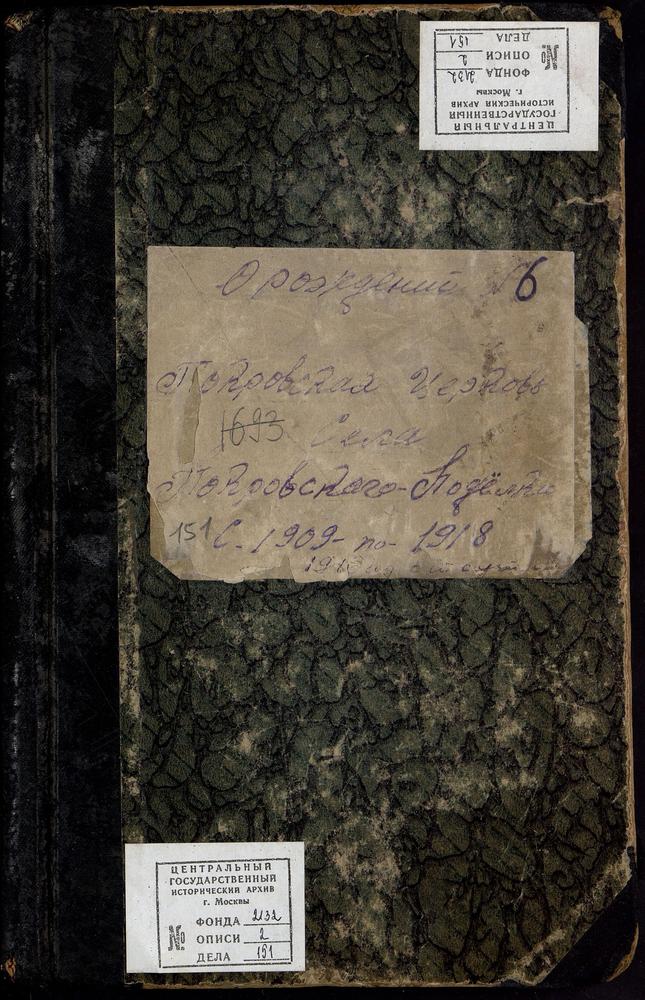 ЦЕНТРАЛЬНЫЙ
ГОСУДАРСТВЕННЫЙ
ИСТОРИЧЕСКИЙ АРХИВ
г. Москвы
№
ФОНДА 2132
ОПИСИ 2
ДЕЛА 151
О рождении №6
Покровская Церковь
1693 Села
Покровского-Подёлки
151 С. 1909- по- 1918
ЦЕНТРАЛЬНЫЙ
ГОСУДАРСТВЕННЫЙ
ИСТОРИЧЕСКИЙ АРХИВ
г. Москвы
№
ФОНДА 2132
ОПИСИ 2
ДЕЛА 151